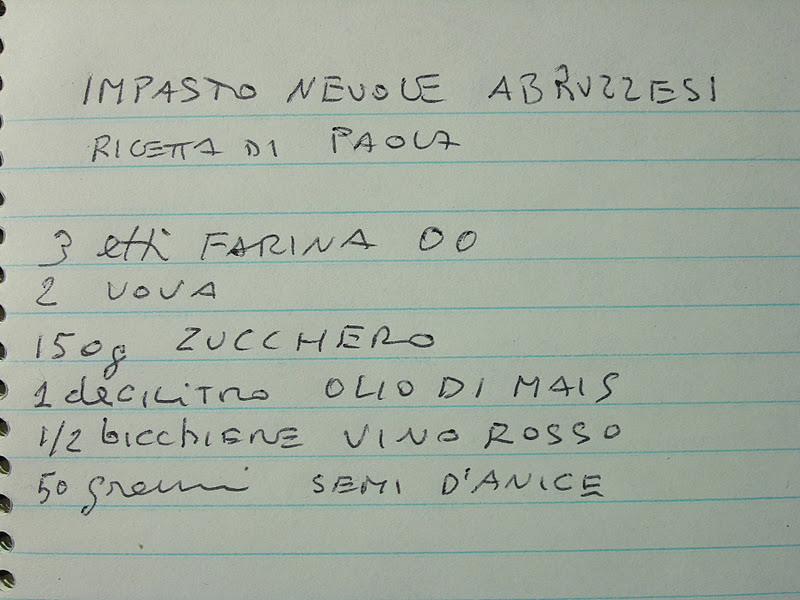 IMPASTO NEVOLE ABRUZZESI
RICETTA DI PAOLA
3 etti FARINA 00
2 UOVA
150g ZUCCHERO
1 deciLiTRO OLIO DI MAIS
1/2 bicchiERE VINO ROSSO
50 grammi SEMI D'ANICE